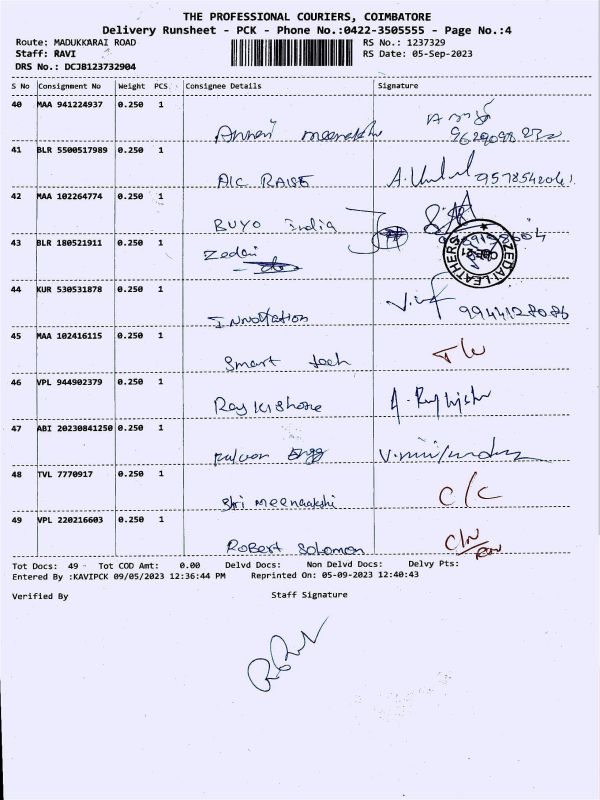 THE PROFESSIONAL COURIERS, COIMBATORE
Delivery Runsheet - PCK - Phone No.:0422-3505555 - Page No.:4
Route: MADUKKARAI ROAD RS No.: 1237329
Staff: RAVI RS Date: 05-Sep-2023
DRS No.: DCJB123732904
S No Consignment No Weight PCS Consignee Details Signature
40 MAA 941224937 0.250 1
meenakshi
41 BLR 5500517989 0.250 1
A/C RAISE 9578542041
42 MAA 102264774 0.250 1
BUYO india
43 BLR 180521911 0.250 1
Zedai ZEDAI LEATHERS
44 KUR 530531878 0.250 1
Innotation 9944128086
45 MAA 102416115 0.250 1
Smart tech
46 VPL 944902379 0.250 1
Raj Kishore
47 ABI 20230841250 0.250 1
Engg
48 TVL 7770917 0.250 1
Shri Meenaakshi C/C
49 VPL 220216603 0.250 1
Robert Solomon
Tot Docs: 49 - Tot COD Amt: 0.00 Delvd Docs: Non Delvd Docs: Delvy Pts:
Entered By :KAVIPCK 09/05/2023 12:36:44 PM Reprinted On: 05-09-2023 12:40:43
Verified By Staff Signature